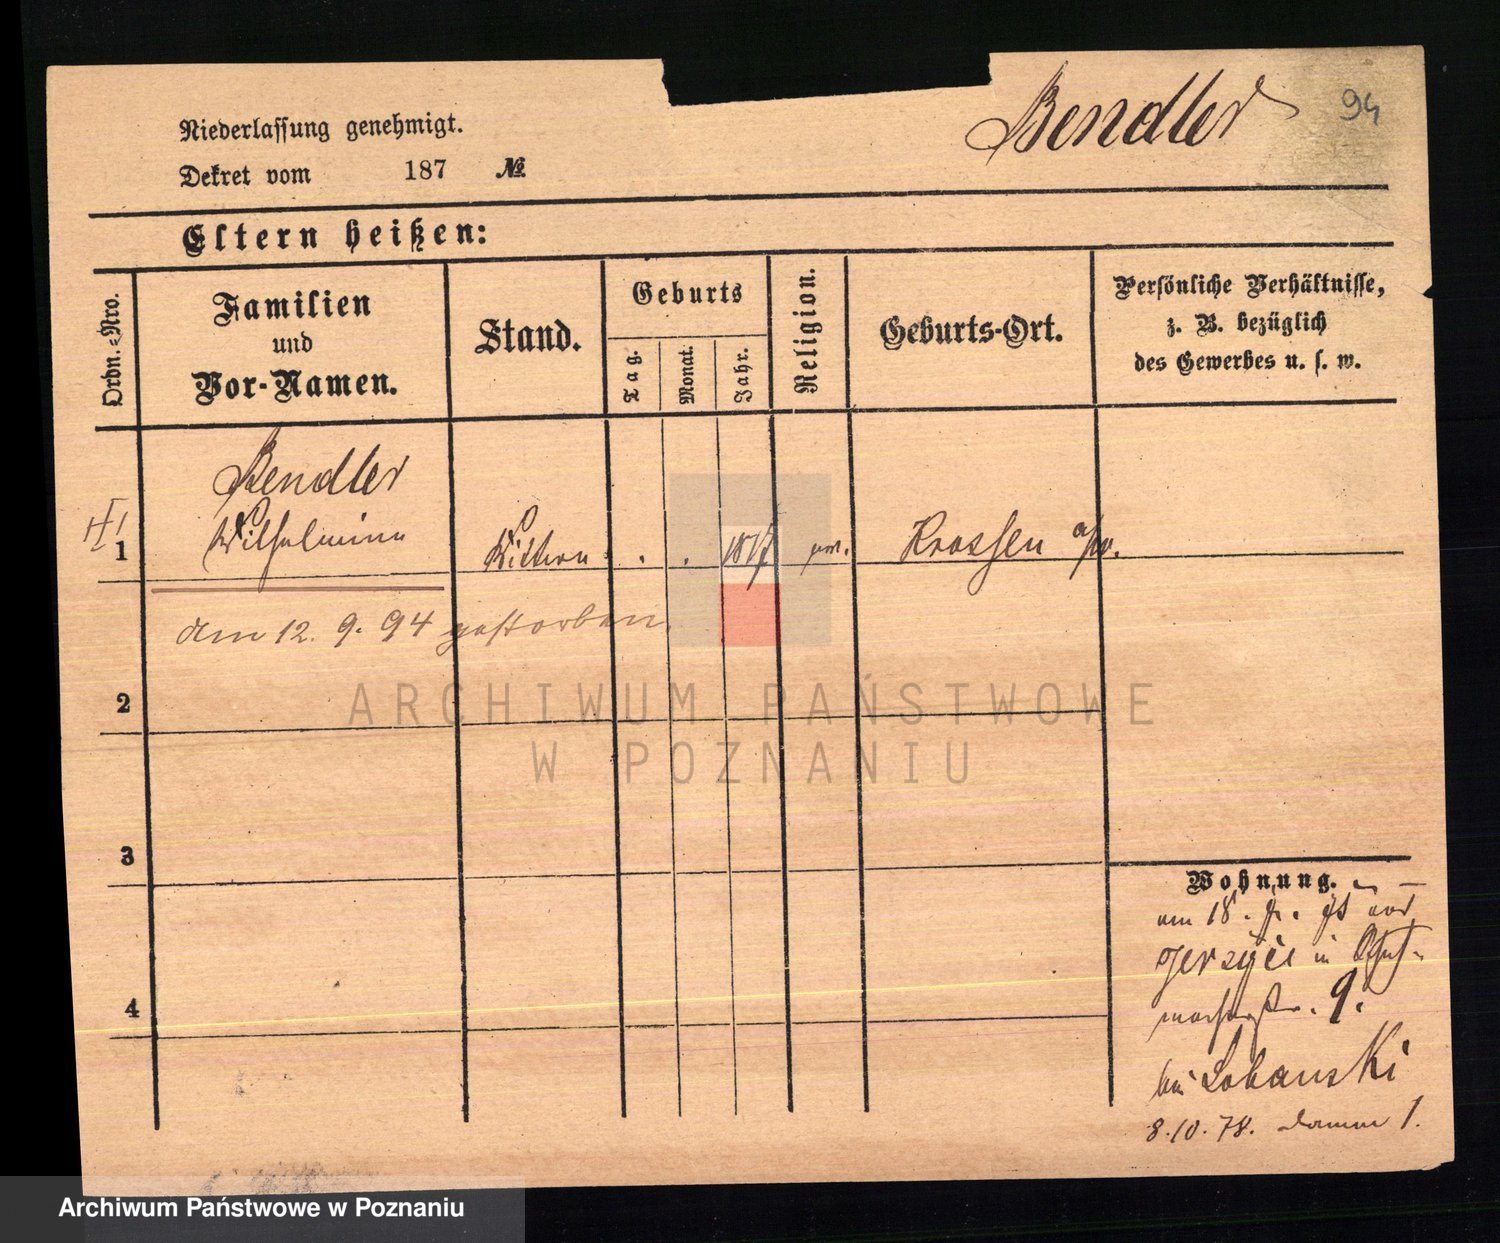 Bendler
94
Niederlassung genehmigt.
Dekret vom 187 №
Eltern heißen:
Ordn.-Nro.
Familien
und
Vor-Namen.
Stand.
Geburts
Tag.
Monat.
Jahr.
Religion.
Geburts-Ort.
Persönliche Verhältnisse,
z. B. bezüglich
des Gewerbes u. s. w.
Bendler
1 Wilhelmine Wittwe . . 1817 ev. Krossen a/o.
am 12. 9. 94 gestorben.
2
ARCHIWUM PAŃSTWOWE
W POZNANIU
3
Wohnung.
am 18.
in
9.
bei Lobanski
4
8.10.78. Damm 1.
Archiwum Państwowe w Poznaniu